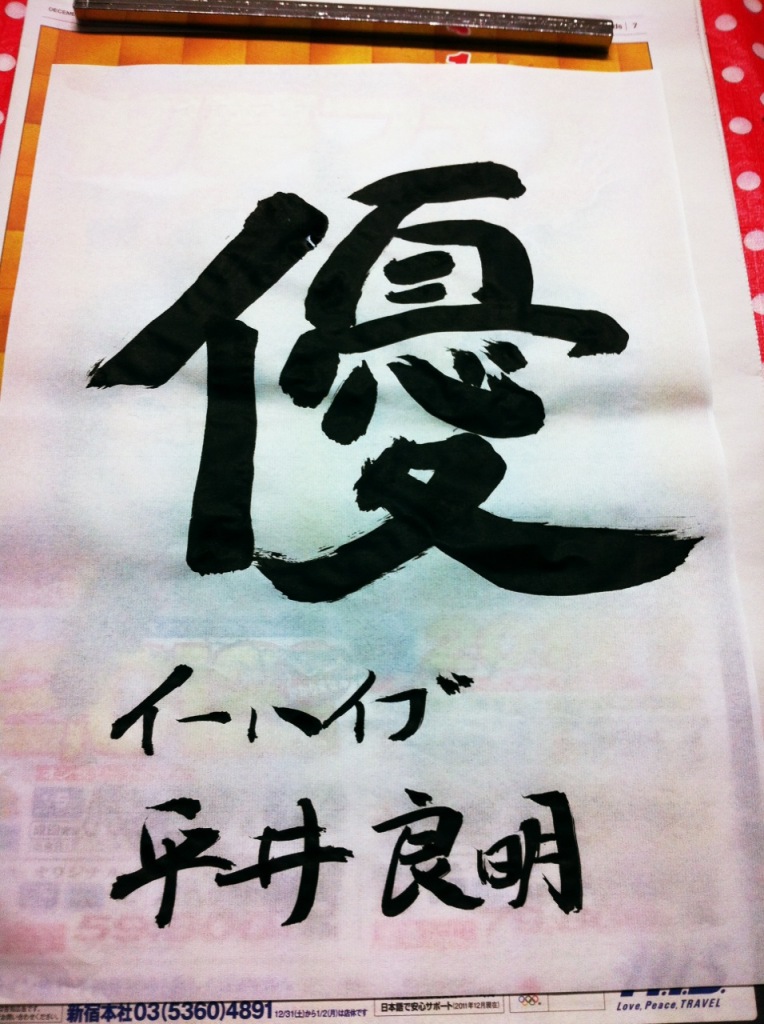 DECEM
ds | 7
優
イーハイブ
平井良明
59,800
新宿本社03(5360)4891 12/31(土)から1/2(月)は店休です 日本語で安心サポート(2011年12月現在)
H.I.S.
Love, Peace, TRAVEL